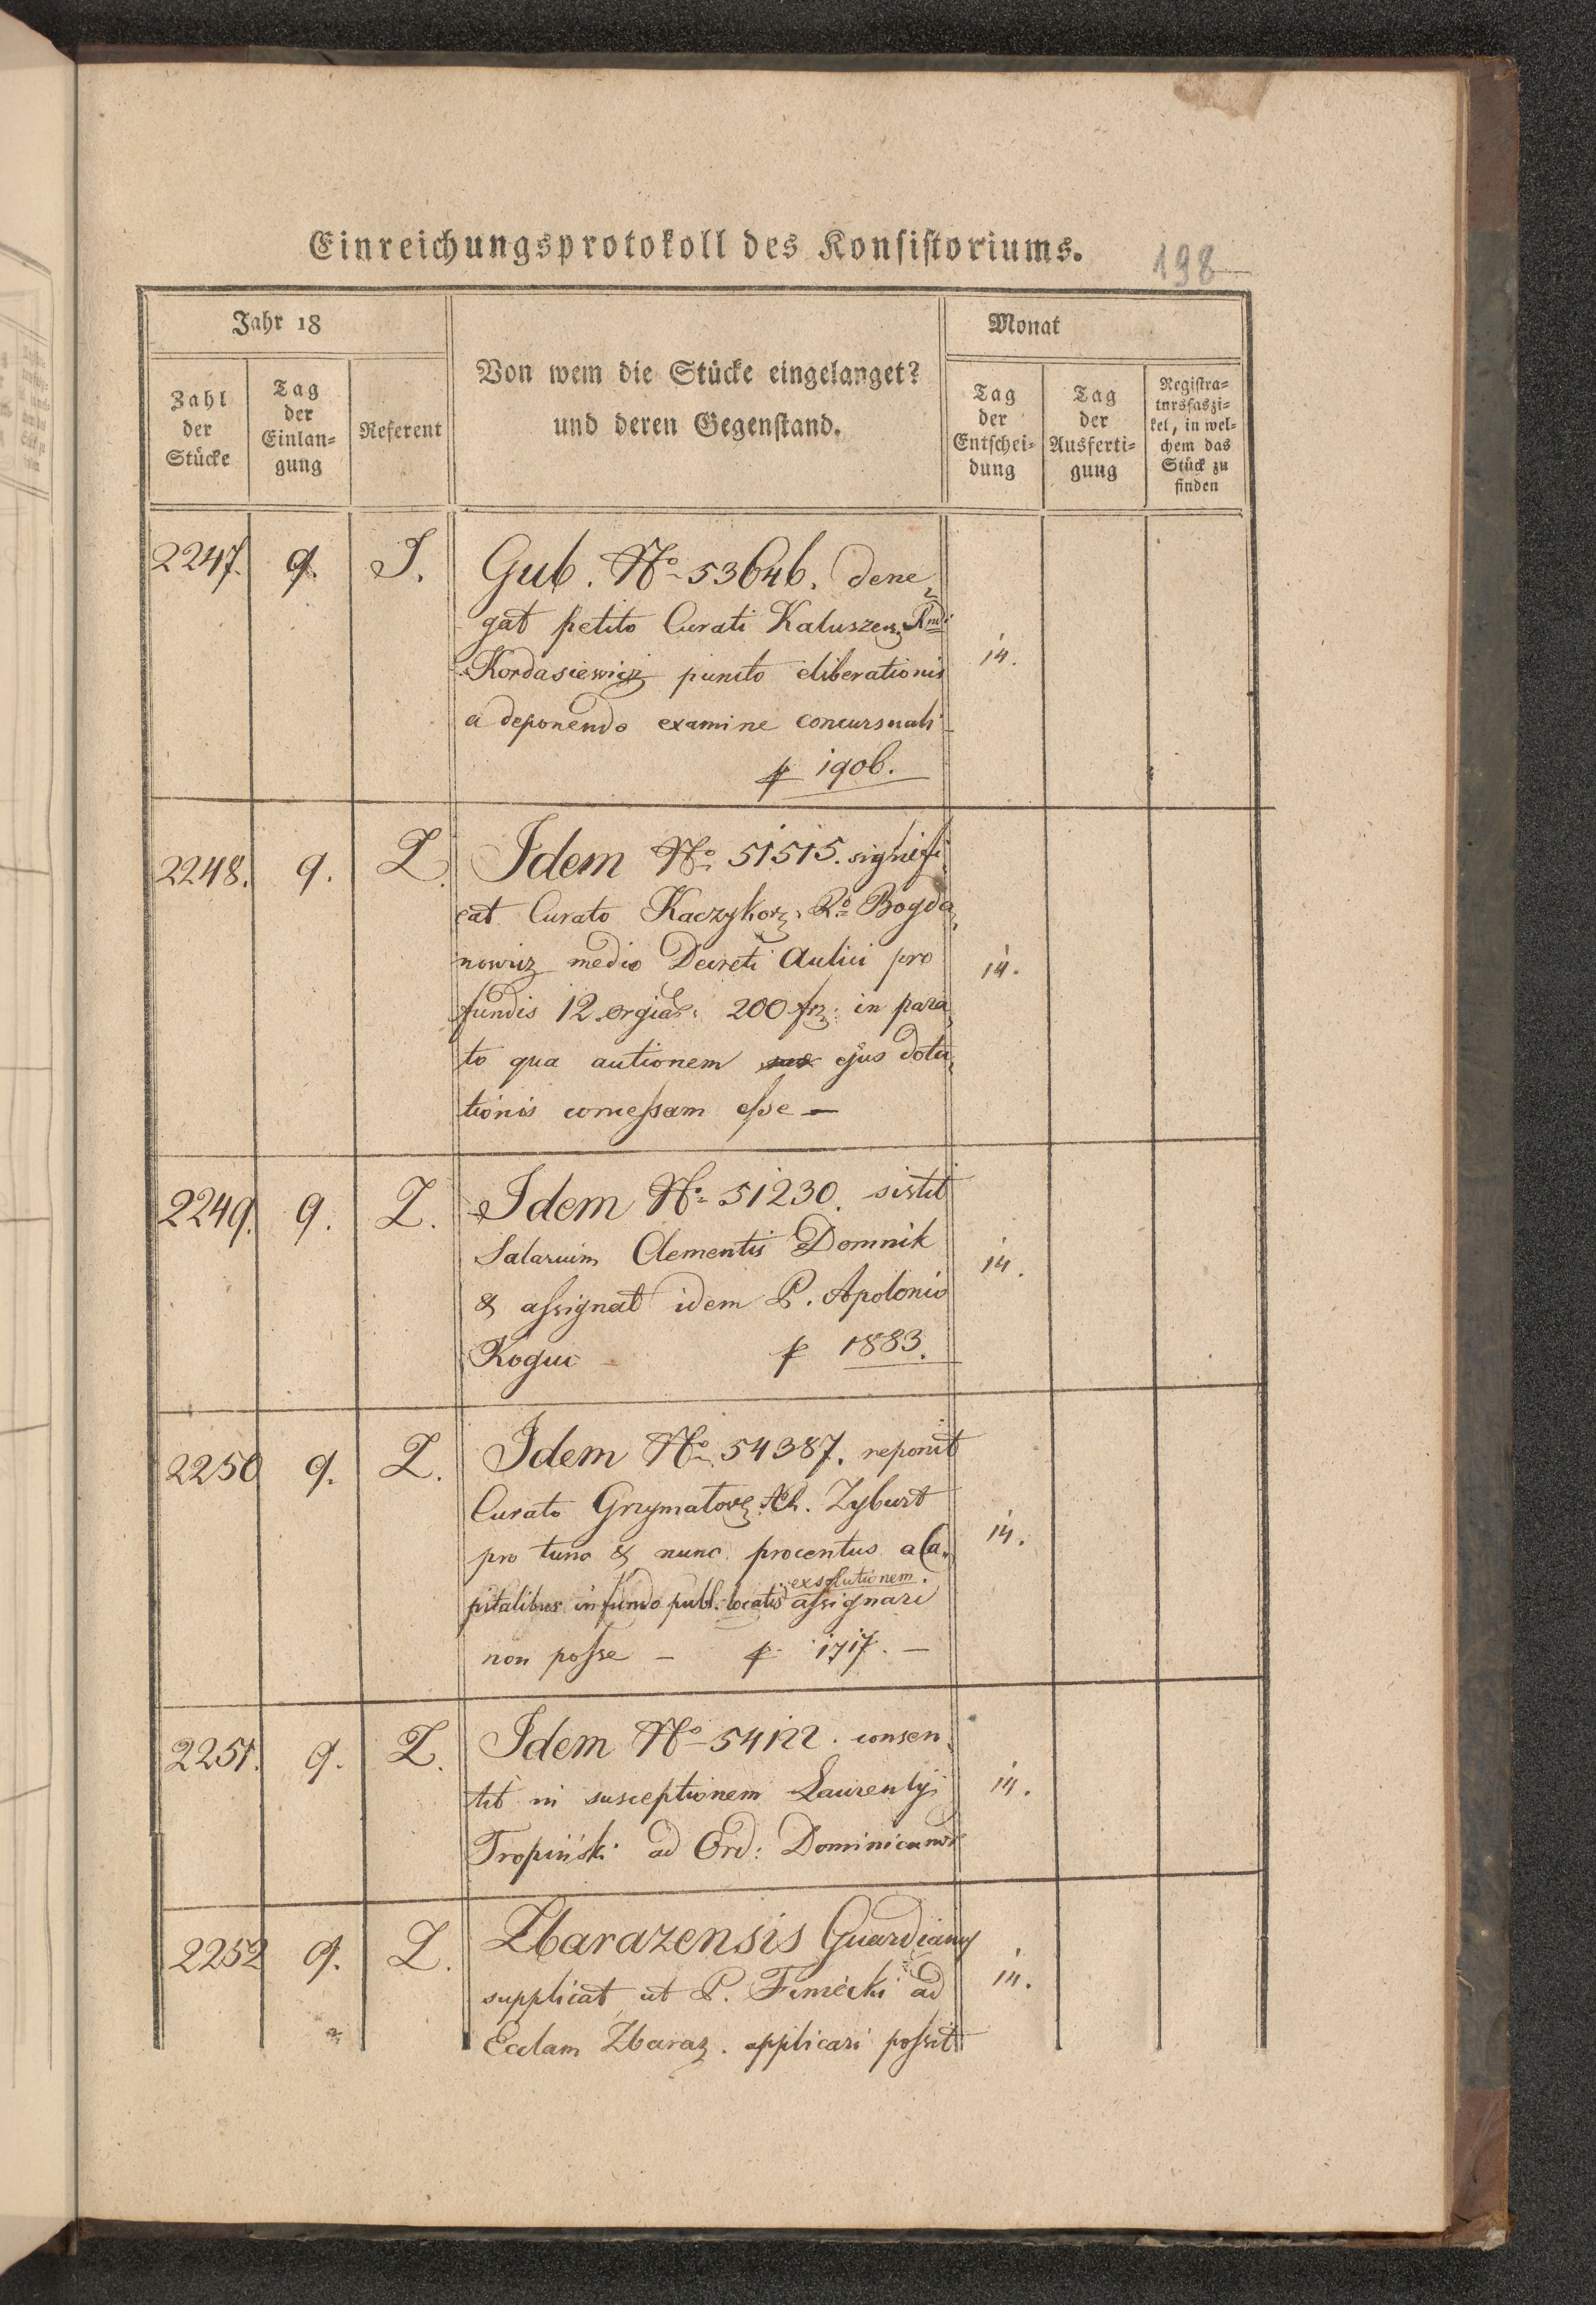 Einreichungsprotokoll des Konsistoriums.
198
Jahr 18
Monat
Zahl der Stücke
Tag der Einlan=gung
Referent
Von wem die Stücke eingelanget?
und deren Gegenstand.
Tag der Entschei=dung
Tag der Ausferti=gung
Registra=tursfaszi=kel, in wel=chem das Stück zu finden
2247. 9. I. Gub. No 53646. dene
gat petito Curati Kaluszen. Rmdi
Kordasiewicz puncto eliberationis
14.
a deponendo examine concursuali
f 1906.
2248. 9. Z. Idem No 51515. signifi
cat Curato Kaczykoz. Ro Bogda
nowicz medio Decreti Aulici pro
14.
fundis 12 orgiar: 200 fr: in para
to qua autionem ejus dota
tionis concessam esse —
2249. 9. Z. Idem No 51230. sistit
Salarium Clementis Domnik
14.
& assignat idem P. Apolonio
Koguc f 1883.
2250 9. Z. Idem No 54387. reponit
Curato Grzymalov. Zyburt
pro tunc & nunc procentus a Ca
14.
pitalibus in fundo publ. locatis exsolutionem assignari
non posse — f 1717. —
2251. 9. Z. Idem No 54122. consen
tit in susceptionem Laurentij
14.
Tropiński ad Ord: Dominicanor
2252 9. Z. Zbarazensis Guardiany
supplicat ut P. ad
14.
Ecclam Zbaraz. applicari possit